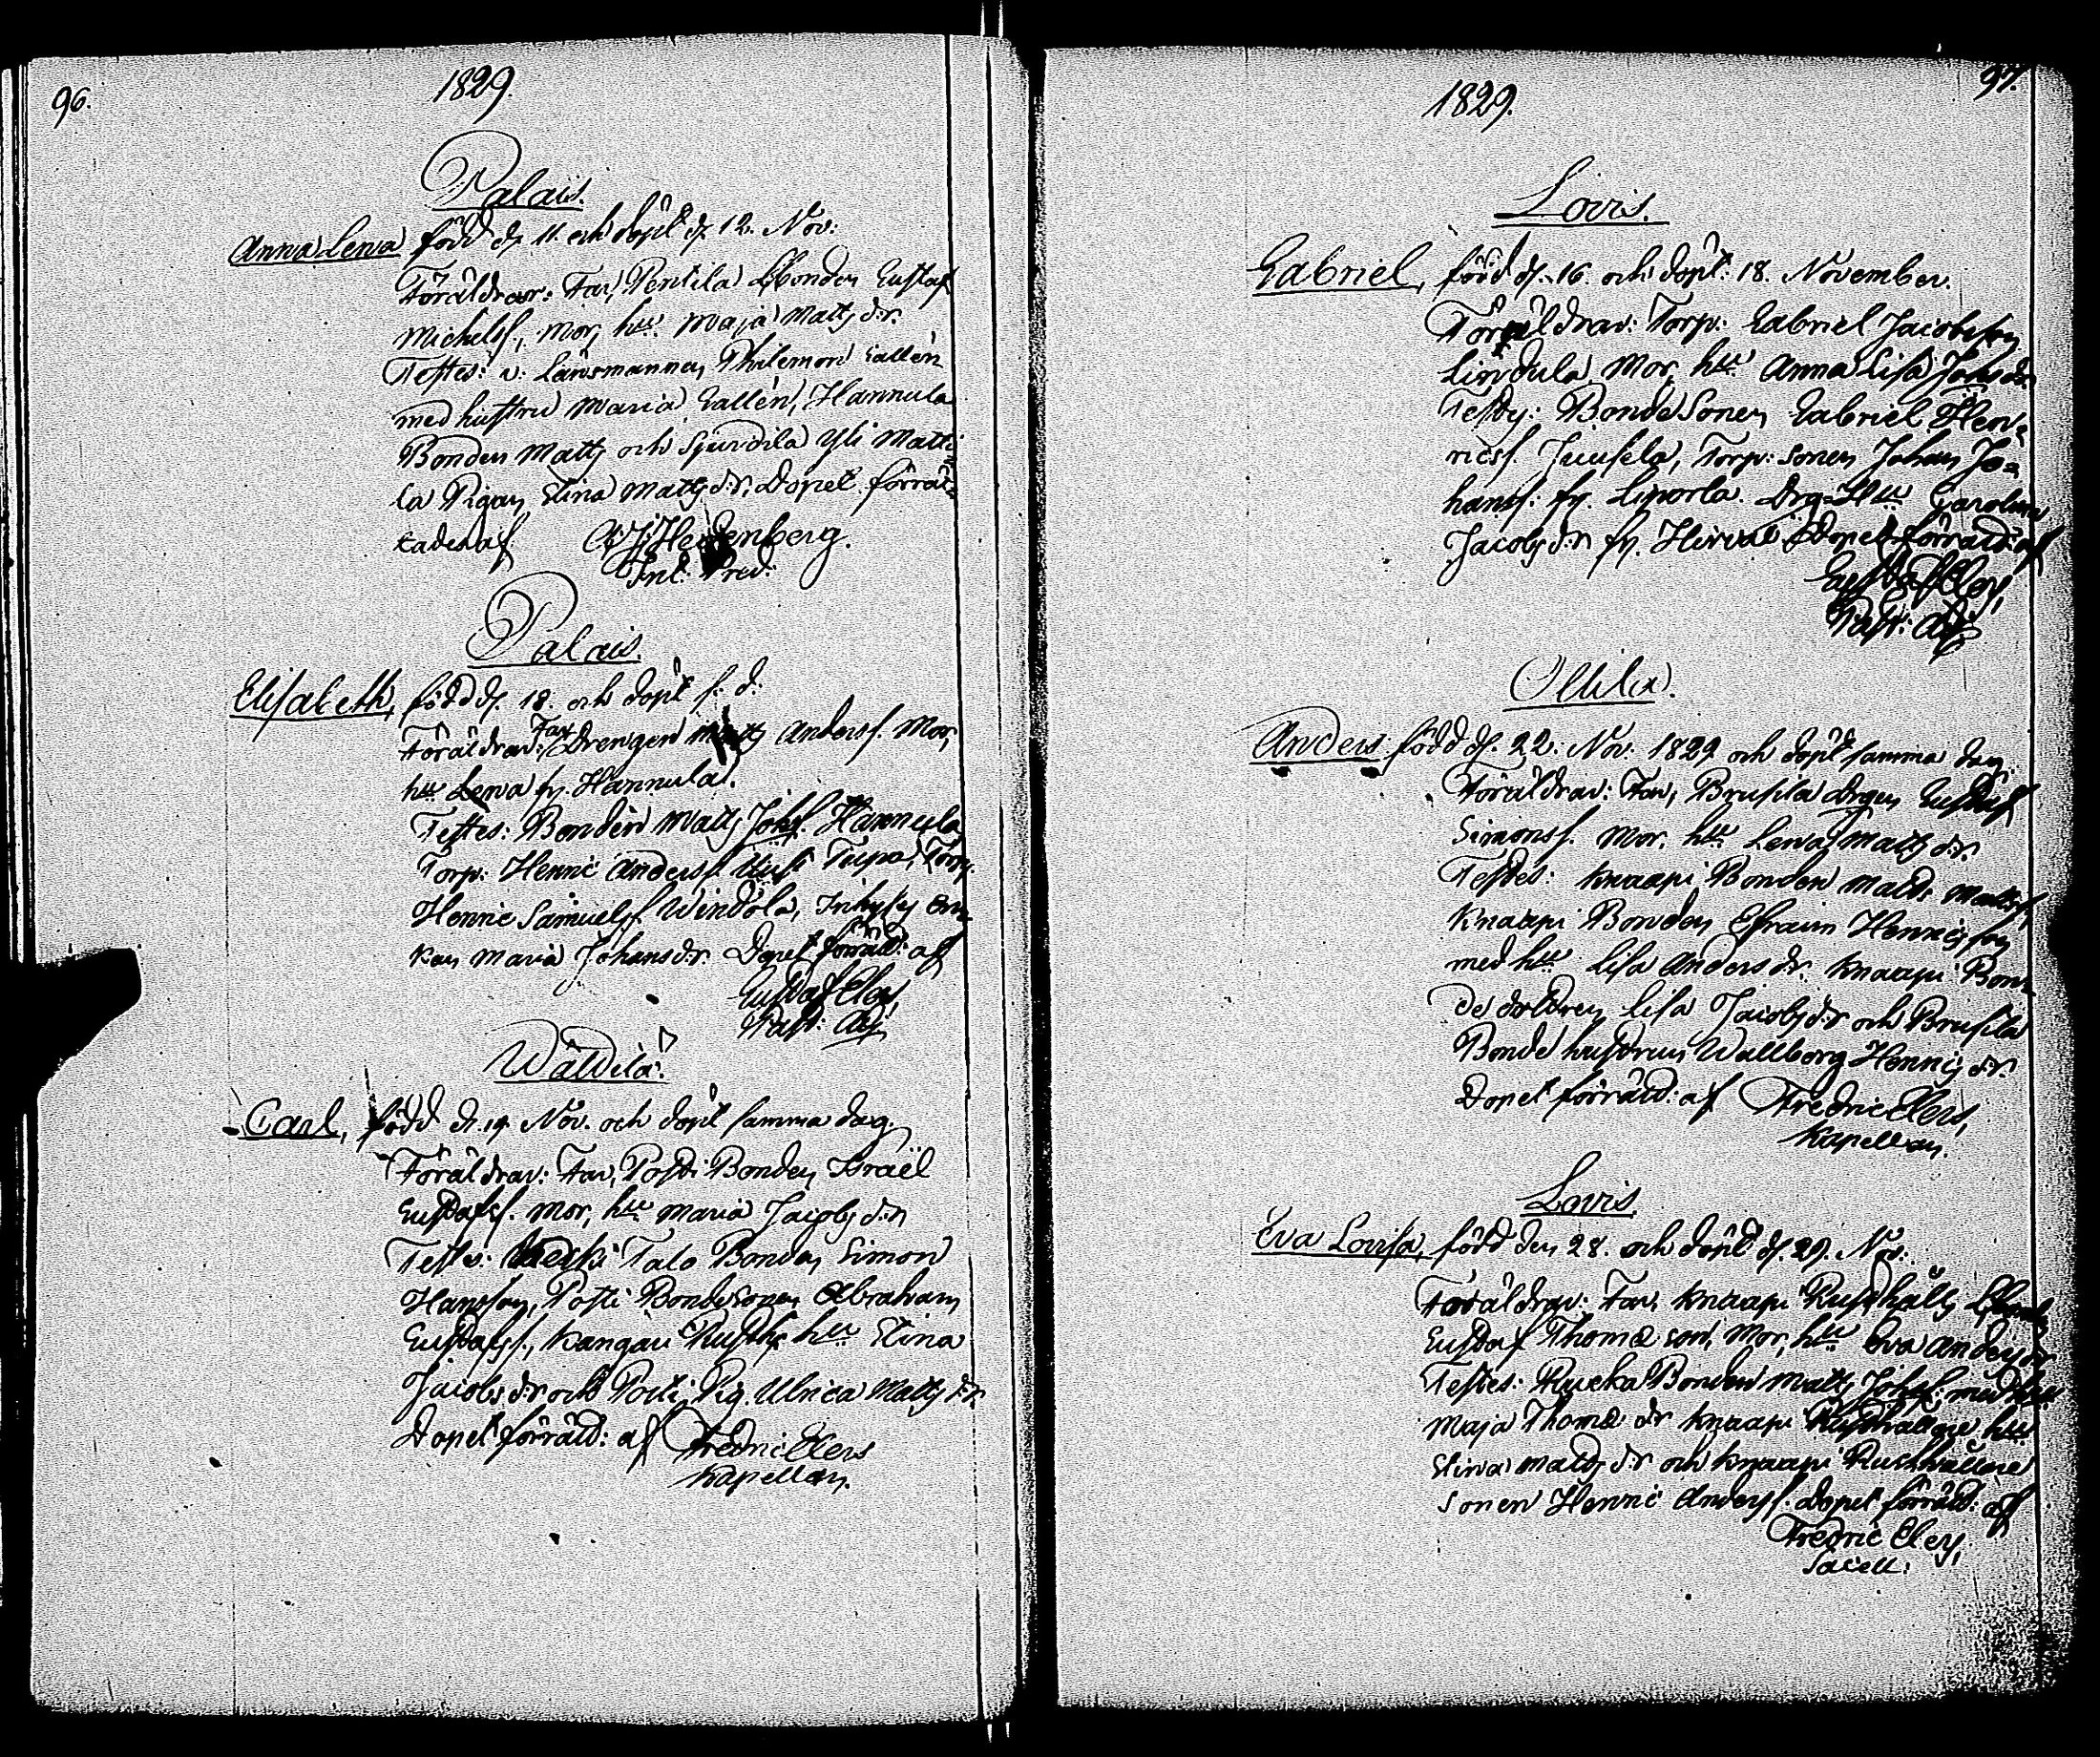 96.
1829.
Palais.
Anna Lena född d. 11. och döpt d. 12. Nov:
Föräldrar: Far, Pentila Bonden Gustaf
Michelss., Mor, hu. Maja Matts d:r.
Testes: v. Länsmannen Philemon Gallén
med hustru Maria Gallén, Hannula
Bonden Matts och Sjundila Yli Matti-
la Pigan Elina Matts d:r, Dopet förrät-
tades af A. J. Hedenberg.
Palais.
Elisabeth, född d. 18. och döpt s. d.
Föräldrar: Far Drengen Matts Anderss. Mor,
hu Lena fr. Hannula.
Testes: Bonden Matts Johss. Hannula,
Torp: Henric Anderss. Tupa, Torp.
Henric Samuelss. Windola, Inhyses En-
kan Maria Johans d:r. Dopet förrätt: af
Gustaf Elers,
Past: Adj.
Wäldilä.
Carl, född d. 19. Nov. och döpt samma dag.
Föräldrar: Far, Posti Bonden Israël
Gustafss. Mor, hu Maria Jacobs d:r
Testes: Keski Talo Bonden Simon
Hansson, Posti Bondesonen Abraham
Gustafss., Kangari Rusth. hu Elina
Jacobs d:r och Posti Pig. Ulrica Matts d:r.
Dopet förrätt: af Fredric Elers
Kapellan.
97.
1829.
Lovis.
Gabriel, född d. 16. och döpt: 18. November.
Föräldrar: Torp: Gabriel Jacobsson
Lindula Mor, hu Anna Lisa Johs dr.
Testes: Bonde Sonen Gabriel Hen-
ricss. Juusela, Torp: sonen Johan Jo-
hanss: fr. Drg: Hu Carolina
Jacobs d:r fr. Dopet förrätt: af
Gustaf Elers,
Past: Adj.
Ollila.
Anders född d. 22. Nov. 1829 och döpt samma dag.
Föräldrar: Far, Brusila drgen Gustaf
Simonss. Mor, hu Lena Matts d:r.
Testes: Knaapi Bonden Matts Mattss,
Knaapi Bonden Efraim Henricsson
med hu Lisa Anders dr. Knaapi Bon-
de dottren Lisa Jacobs d:r och Brusila
Bonde hustrun Wallborg Henrics d:r.
Dopet förrätt: af Fredric Elers,
Kapellan.
Lovis.
Eva Lovisa, född den 28. och döpt d. 29. Nov:
Föräldrar: Far, Knaapi Rusthålls
Gustaf Thomæ son, Mor, hu Eva Anders dr
Testes: Bonden Matts Johss: med hu
Maja Thomæ dr Knaapi Rusthållare hu
Elina Matts d:r och Knaapi Rusthållare
sonen Henric Anderss. Dopet förrätt: af
Fredric Elers,
Sacell: